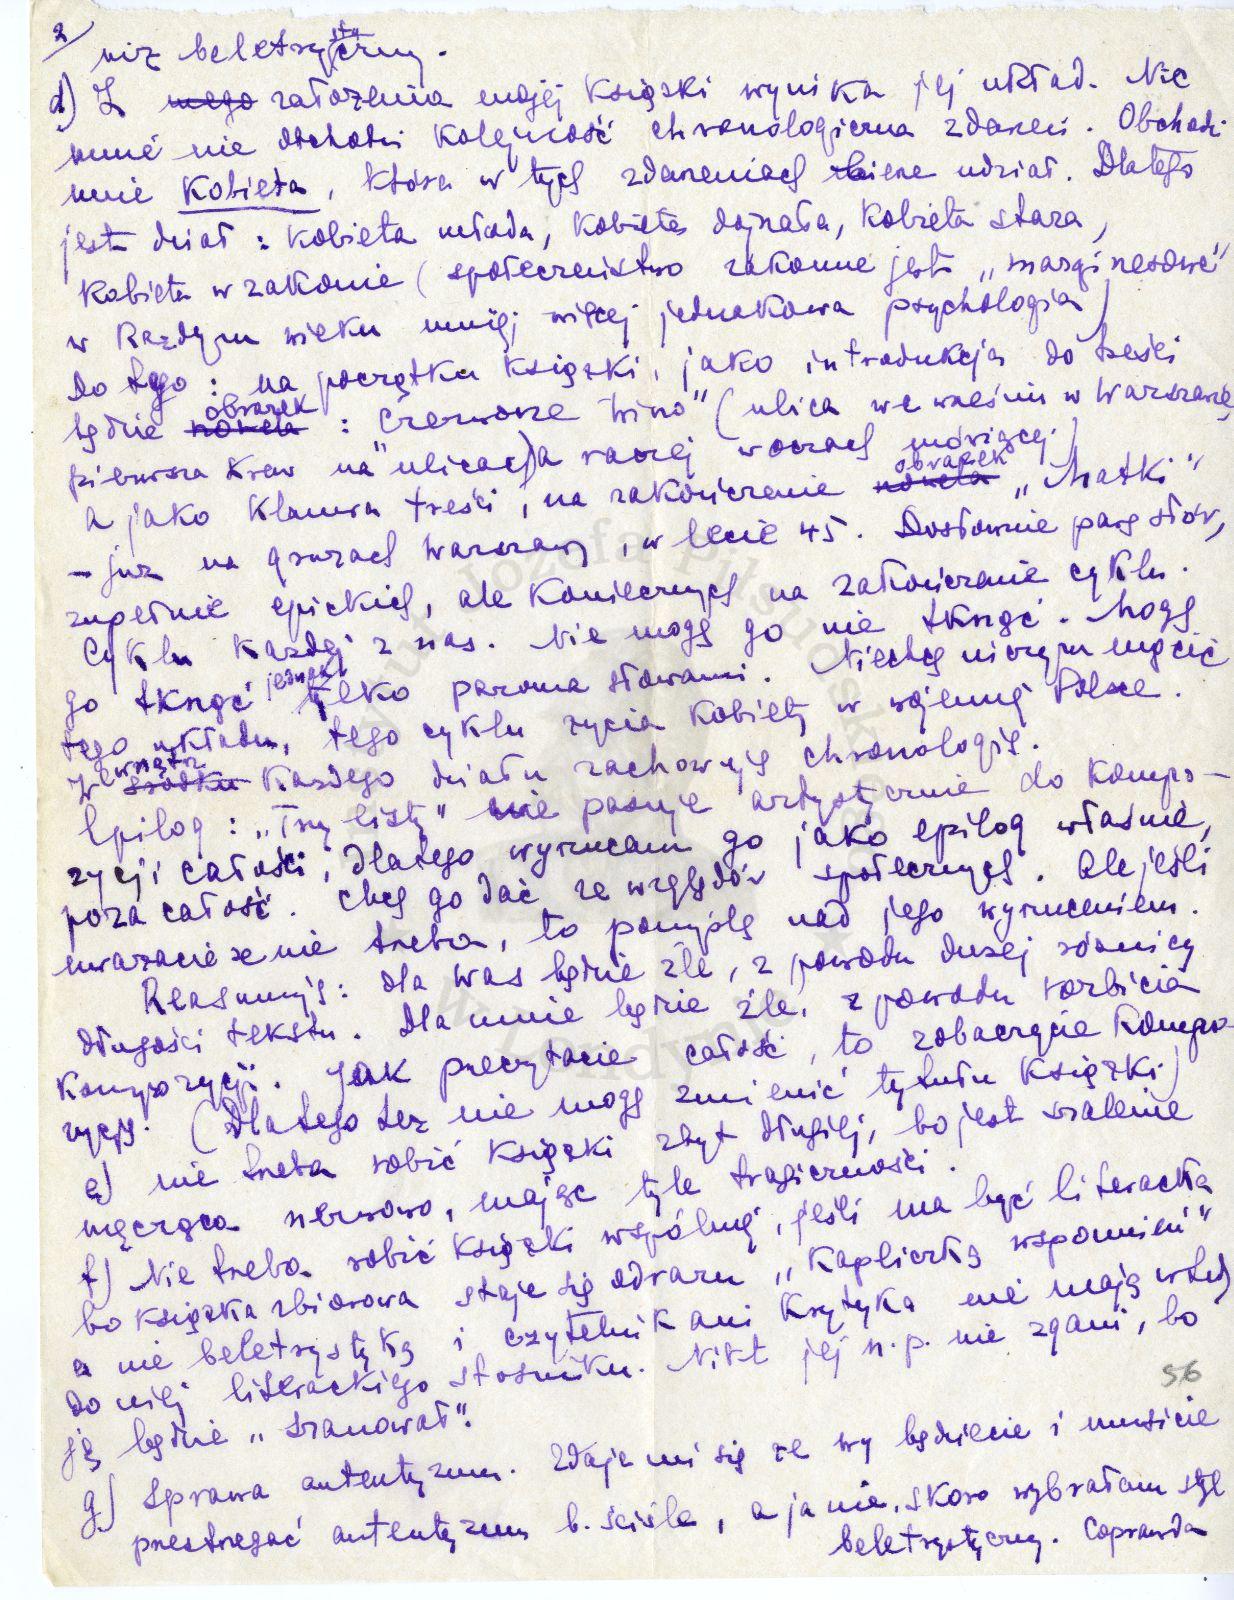 2/
niż beletrystyczny.
d) Z mego założenia mojej książki wynika jej układ. Nic
mnie nie obchodzi kolejność chronologiczna zdarzeń. Obchodzi
mnie Kobieta, która w tych zdarzeniach bierze udział. Dlatego
jest dział: Kobieta młoda, Kobieta dojrzała, Kobieta stara,
Kobieta w zakonie (społeczeństwo zakonne jest „marginesowe"
w każdym wieku mniej więcej jednakowa psychologia)
Do tego: na początku książki, jako introdukcja do treści
będzie nowela obrazek: „Czerwone wino" (ulica we wrześniu w Warszawie,
pierwsza krew na ulicach) a raczej w oczach mówiącej)
a jako klamra treści, na zakończenie nowela obrazek „Matki"
– już na gruzach Warszawy, w lecie 45. Dosłownie parę słów,
zupełnie epickich, ale koniecznych na zakończenie cyklu.
Cyklu każdej z nas. Nie mogę go nie tknąć. Mogę
go tknąć jednak tylko paroma słowami. Niechcę niczym mącić
tego układu, tego cyklu życia kobiety w wojennej Polsce.
We środku wnątrz każdego działu zachowuję chronologię.
Epilog: „Trzy listy" nie pasuje artystycznie do kompo-
zycji całości, dlatego wyrzucam go jako epilog właśnie,
poza całość. Chcę go dać ze względów społecznych. Ale jeśli
uważacie że nie trzeba, to pomyślę nad jego wyrzuceniem.
Reasumuję: dla Was będzie źle, z powodu dużej różnicy
długości tekstu. Dla mnie będzie źle, z powodu rozbicia
kompozycji. Jak przeczytacie całość, to zobaczycie kompo-
zycję. (Dlatego też nie mogę zmienić tytułu książki)
e) nie trzeba robić książki zbyt długiej, bo jest szalenie
męcząca nerwowo, mając tyle tragiczności.
f) Nie trzeba robić książki wspólnej, jeśli ma być literacka
bo książka zbiorowa staje się odrazu „Kapliczką wspomnień"
a nie beletrystyką i czytelnik ani krytyka nie mają wtedy
do niej literackiego stosunku. Nikt jej n.p. nie zgani, bo
ją będzie „szanował".
56
g) Sprawa autentyzmu. Zdaje mi się że wy będziecie i musicie
przestrzegać autentyzmu b. ściśle, a ja nie, skoro wybrałam styl
beletrystyczny. Coprawda
Instytut Józefa Piłsudskiego
w Londynie